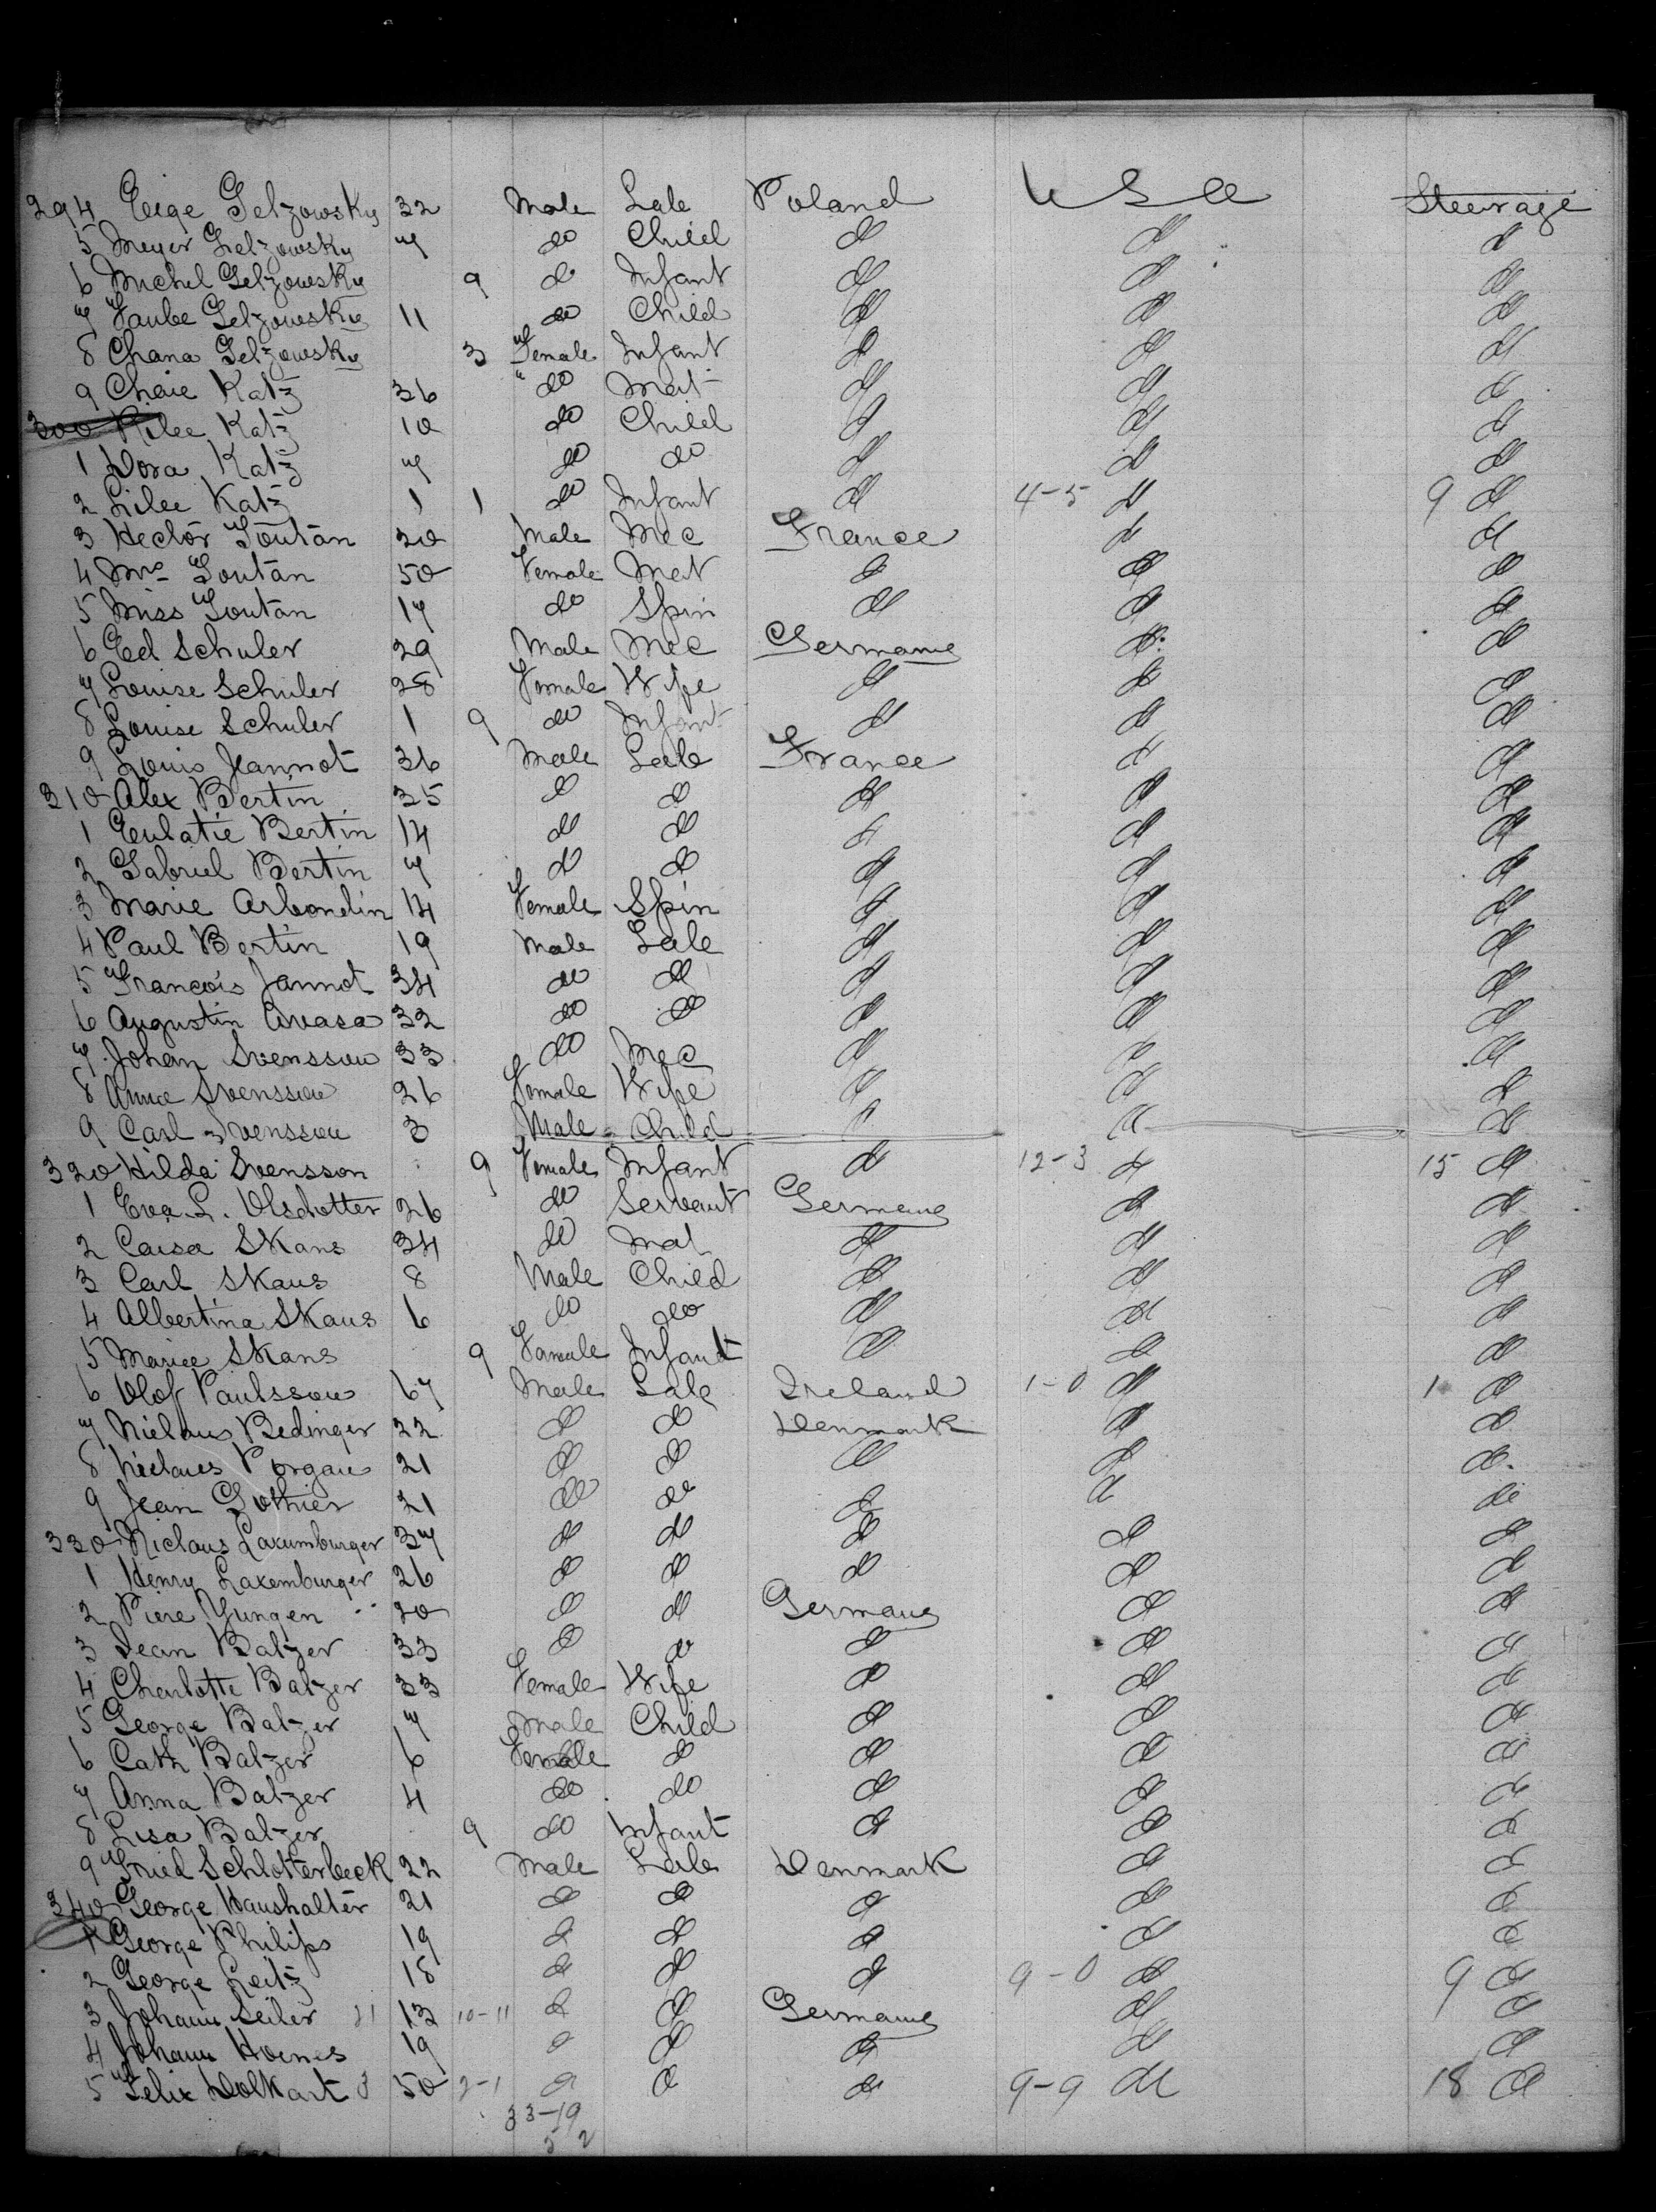 294 Geige Gelzowsky 32 Male Lab Poland U S A Steerage
5 Meyer Gelzowsky 7 do Child do do do
6 Michel Gelzowsky 9 do Infant do do do
7 Taube Gelzowsky 11 do Child do do do
8 Chana Gelzowsky 3 Female Infant do do do
9 Chaie Katz 36 do Mat do do do
300 Rilee Katz 10 do Child do do do
1 Dora Katz 7 do do do do do
2 Lilee Katz 1 1 do Infant do 4-5 do 9 do
3 Hector Toutan 20 Male Mec France do do
4 Mrs Toutan 50 Female Mat do do do
5 Miss Toutan 17 do Spin do do do
6 Ed Schuler 29 Male Mec Germany do do
7 Louise Schuler 28 Female Wife do do do
8 Louise Schuler 1 9 do Infant do do do
9 Louis Jeannot 36 Male Lab France do do
310 Alex Bertin 35 do do do do do
1 Eulatie Bertin 14 do do do do do
2 Gabriel Bertin 7 do do do do do
3 Marie Arbondin 14 Female Spin do do do
4 Paul Bertin 19 Male Lab do do do
5 Francois Jannot 34 do do do do do
6 Augustin Avasa 32 do do do do do
7 Johan Svensson 33 do Mec do do do
8 Anna Svensson 26 Female Wife do do do
9 Carl Svensson 3 Male Child do do do
320 Hilda Svensson 9 Female Infant do 12-3 do 15 do
1 Eva L. Olschotter 26 do Servant Germany do do
2 Caisa Skans 34 do Mat do do do
3 Carl Skans 8 Male Child do do do
4 Albertina Skans 6 do do do do do
5 Mariee Skans 9 Female Infant do do do
6 Olof Paulsson 67 Male Lab Ireland 1-0 do 1 do
7 Nielaus Bedinger 22 do do Denmark do do
8 Nielaus Porgan 21 do do do do do
9 Jean Gothier 21 do do do do do
330 Niclaus Laxumburger 37 do do do do do
1 Henry Laxemburger 26 do do do do do
2 Piere Yungen 20 do do Germany do do
3 Jean Balzer 33 do do do do do
4 Charlotte Balzer 33 Female Wife do do do
5 George Balzer 7 Male Child do do do
6 Cath Balzer 6 Female do do do do
7 Anna Balzer 4 do do do do do
8 Lisa Balzer 9 do Infant do do do
9 Fried Schlotterbeck 22 Male Lab Denmark do do
340 George Haushalter 21 do do do do do
1 George Philips 19 do do do do do
2 George Leitz 18 do do do 9-0 do 9 do
3 Johann Seiler 13 10-11 do do Germany do do
4 Johann Hoenes 19 do do do do do
5 Felix Volkart 3 50 2-1 do do do 9-9 do 18 do
33-19
5 2